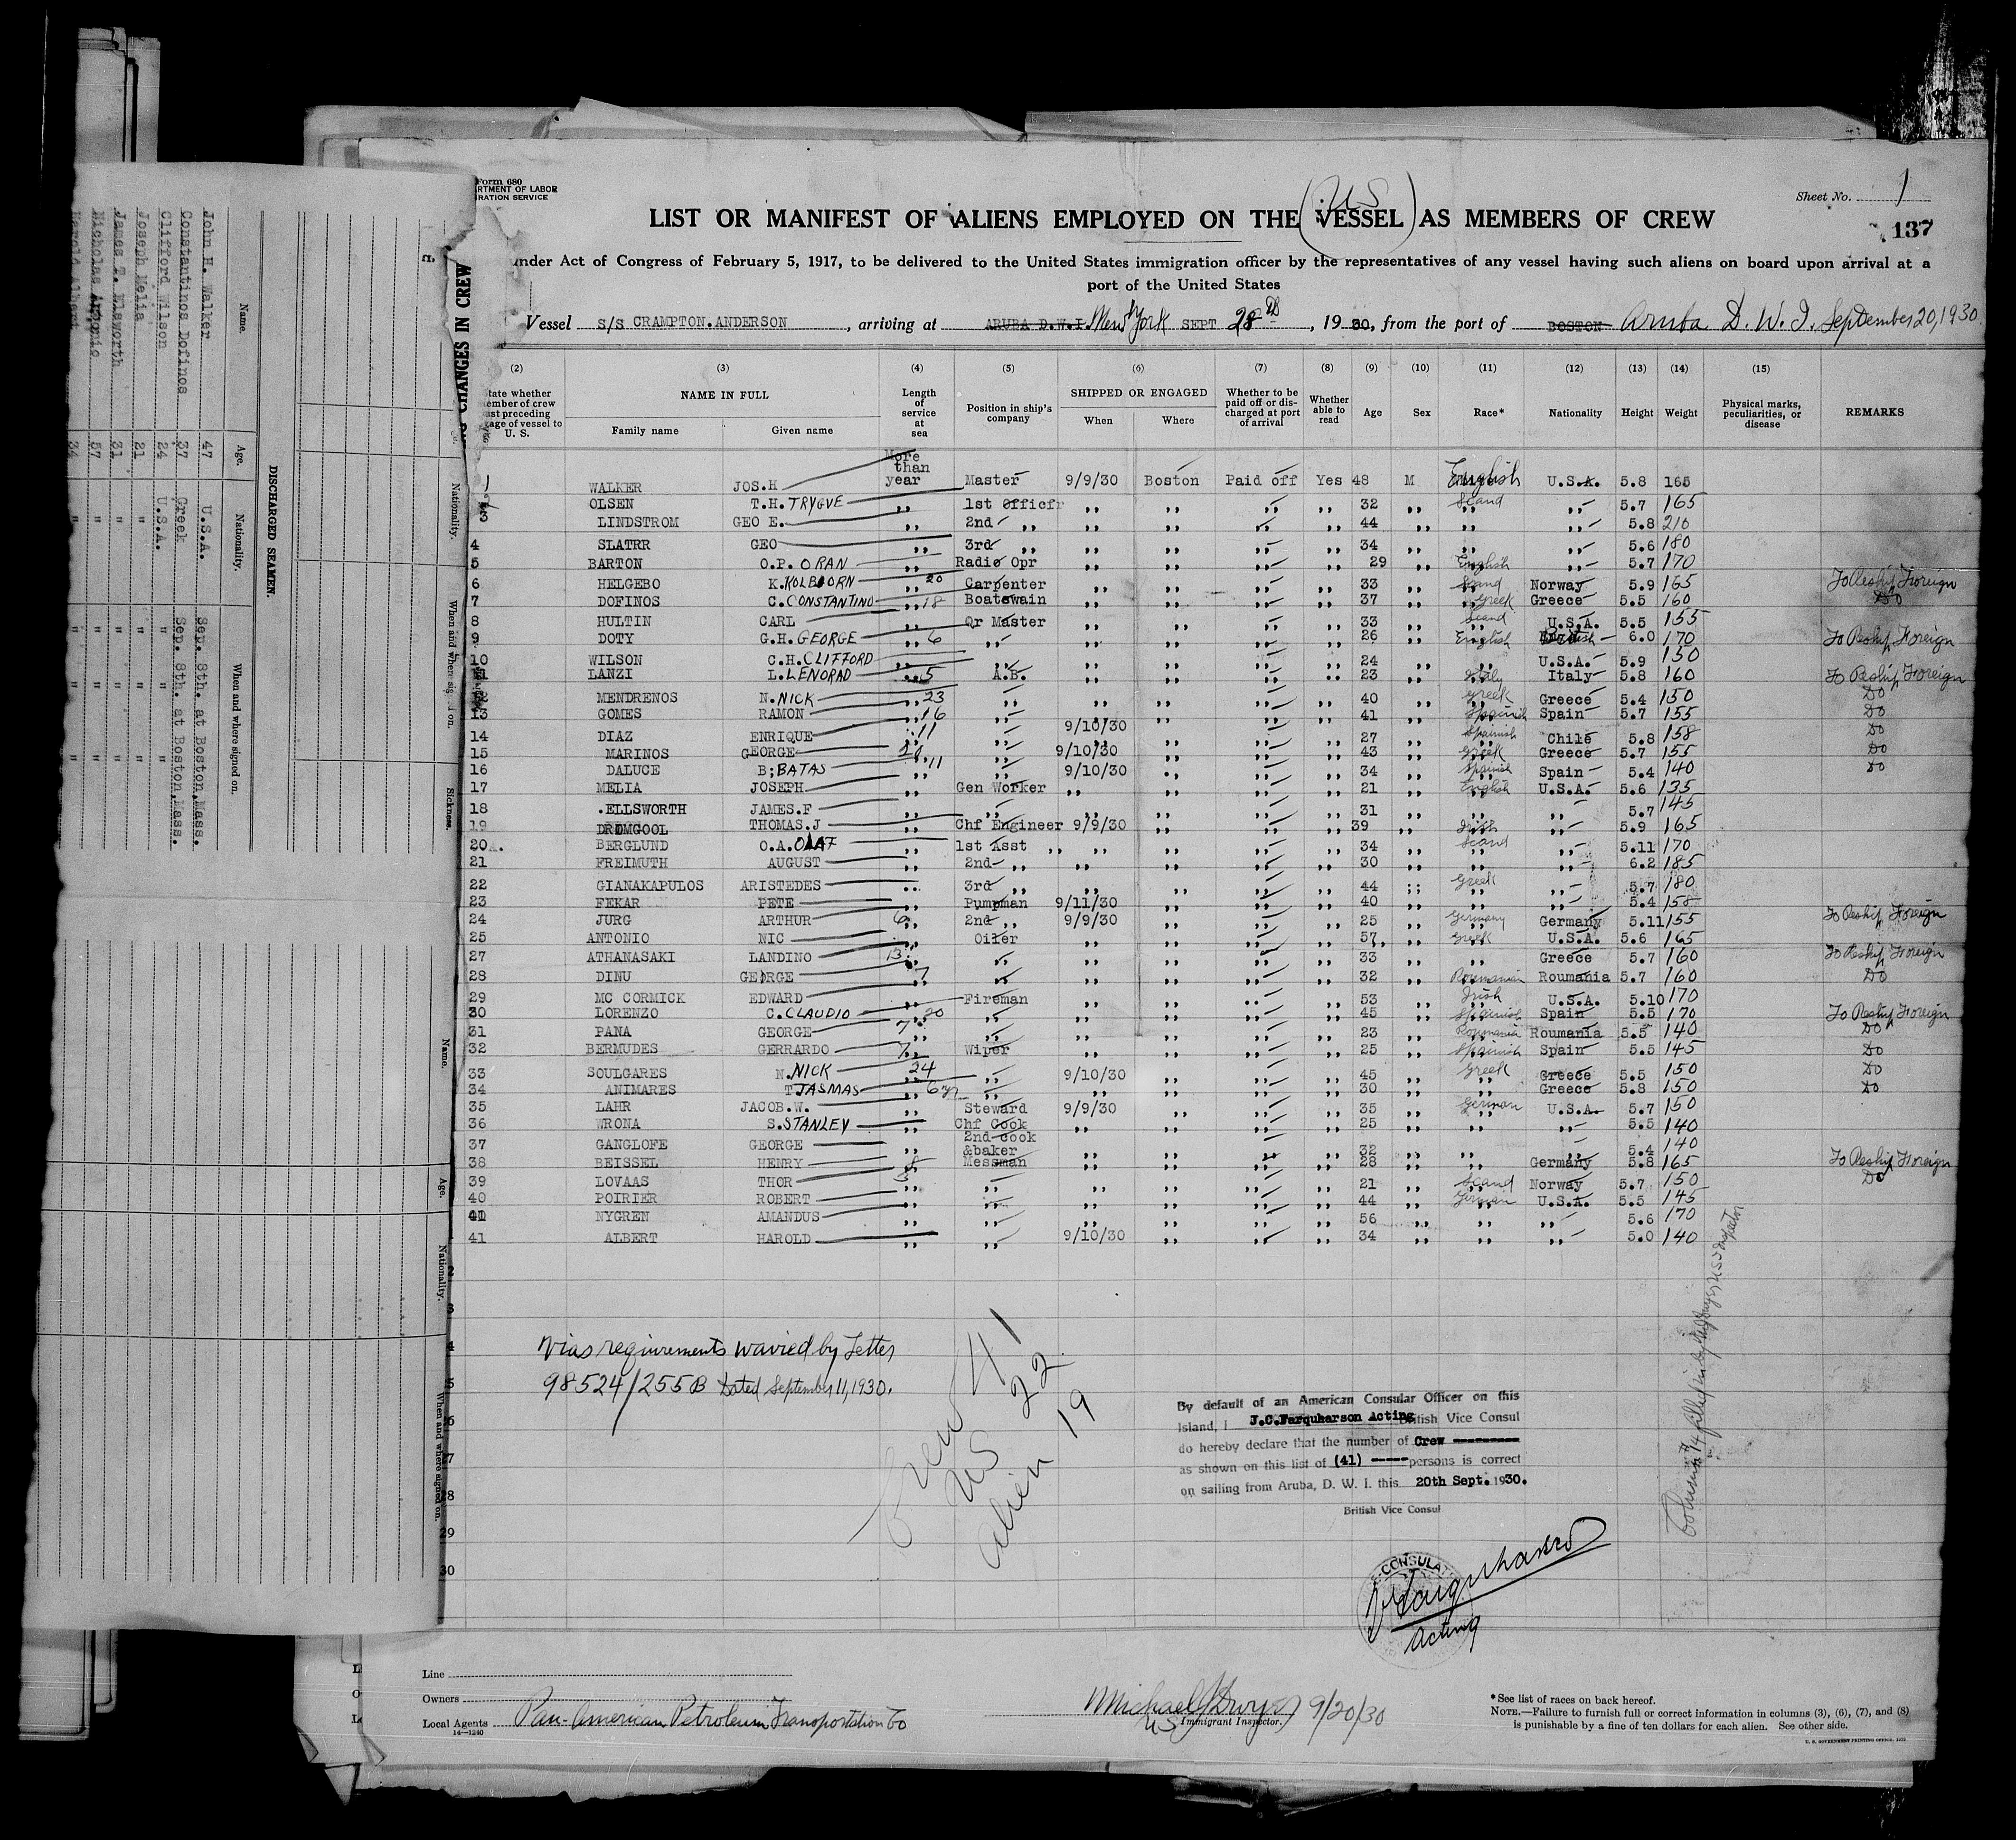 Form 680
RTMENT OF LABOR
RATION SERVICE
Sheet No. 1
137
(U.S.)
LIST OR MANIFEST OF ALIENS EMPLOYED ON THE VESSEL AS MEMBERS OF CREW
nder Act of Congress of February 5, 1917, to be delivered to the United States immigration officer by the representatives of any vessel having such aliens on board upon arrival at a
port of the United States
Vessel S/S CRAMPTON.ANDERSON, arriving at ARUBA D.W.I. New York SEPT 28th, 1930, from the port of BOSTON Aruba D. W. I. September 20, 1930
(2) (3) (4) (5) (6) (7) (8) (9) (10) (11) (12) (13) (14) (15)
tate whether ember of crew ast preceding age of vessel to U. S.
NAME IN FULL Family name Given name
Length of service at sea
Position in ship's company
SHIPPED OR ENGAGED When Where
Whether to be paid off or discharged at port of arrival
Whether able to read
Age Sex Race* Nationality Height Weight
Physical marks, peculiarities, or disease
REMARKS
1 WALKER JOS.H More than year Master 9/9/30 Boston Paid off Yes 48 M English U.S.A. 5.8 165
OLSEN T.H. TRYGVE ,, 1st Officfr ,, ,, ,, ,, 32 ,, Scand ,, 5.7 165
3 LINDSTROM GEO E. ,, 2nd ,, ,, ,, ,, ,, 44 ,, ,, ,, 5.8 210
4 SLATRR GEO ,, 3rd ,, ,, ,, ,, ,, 34 ,, ,, ,, 5.6 180
5 BARTON O.P. ORAN ,, Radio Opr ,, ,, ,, ,, 29 ,, English ,, 5.7 170
6 HELGEBO K. KOLBJORN ,, 20 Carpenter ,, ,, ,, ,, 33 ,, Scand Norway 5.9 165 To Reship Foreign
7 DOFINOS C. CONSTANTINO ,, 18 Boatswain ,, ,, ,, ,, 37 ,, Greek Greece 5.5 160 Do
8 HULTIN CARL ,, Qr Master ,, ,, ,, ,, 33 ,, Scand U.S.A. 5.5 155
9 DOTY G.H. GEORGE ,, 6 ,, ,, ,, ,, ,, 26 ,, English 6.0 170 To Reship Foreign
10 WILSON C.H. CLIFFORD ,, ,, ,, ,, ,, 24 ,, ,, U.S.A. 5.9 150
11 LANZI L. LENORAD ,, 5 A.B. ,, ,, ,, ,, 23 ,, Italy Italy 5.8 160 To Reship Foreign
12 MENDRENOS N. NICK ,, 23 ,, ,, ,, ,, ,, 40 ,, Greek Greece 5.4 150 Do
13 GOMES RAMON ,, 16 ,, ,, ,, ,, 41 ,, Spanish Spain 5.7 155 Do
14 DIAZ ENRIQUE 11 ,, 9/10/30 ,, ,, ,, 27 ,, Spanish Chile 5.8 158 Do
15 MARINOS GEORGE ,, 9/10/30 ,, ,, ,, 43 ,, Greek Greece 5.7 155 Do
16 DALUCE B; BATAS ,, 11 ,, 9/10/30 ,, ,, ,, 34 ,, Spanish Spain 5.4 140 Do
17 MELIA JOSEPH ,, Gen Worker ,, ,, ,, ,, 21 ,, English U.S.A. 5.6 135
18 .ELLSWORTH JAMES.F ,, ,, ,, ,, ,, ,, 31 ,, ,, ,, 5.7 145
19 DRDMGOOL THOMAS.J ,, Chf Engineer 9/9/30 ,, ,, ,, 39 ,, Irish ,, 5.9 165
20 BERGLUND O.A. OLAF ,, 1st Asst ,, ,, ,, ,, ,, 34 ,, Scand ,, 5.11 170
21 FREIMUTH AUGUST ,, 2nd ,, ,, ,, ,, ,, 30 ,, ,, ,, 6.2 185
22 GIANAKAPULOS ARISTEDES ,, 3rd ,, ,, ,, ,, ,, 44 ,, Greek ,, 5.7 180
23 FEKAR PETE ,, Pumpman 9/11/30 ,, ,, ,, 40 ,, ,, ,, 5.4 158
24 JURG ARTHUR 6 ,, 2nd ,, 9/9/30 ,, ,, ,, 25 ,, Germany Germany 5.11 155 To Reship Foreign
25 ANTONIO NIC ,, Oiler ,, ,, ,, ,, 57 ,, Greek U.S.A. 5.6 165
27 ATHANASAKI LANDINO 13 ,, ,, ,, ,, ,, ,, 33 ,, ,, Greece 5.7 160 To Reship Foreign
28 DINU GEORGE ,, 7 ,, ,, ,, ,, ,, 32 ,, Roumanian Roumania 5.7 160 Do
29 MC CORMICK EDWARD ,, Fireman ,, ,, ,, ,, 53 ,, Irish U.S.A. 5.10 170
30 LORENZO C. CLAUDIO ,, 20 ,, ,, ,, ,, ,, 45 ,, Spanish Spain 5.5 170 To Reship Foreign
31 PANA GEORGE 7 ,, ,, ,, ,, ,, ,, 23 ,, Roumania Roumania 5.5 140 Do
32 BERMUDES GERRARDO 7 ,, Wiper ,, ,, ,, ,, 25 ,, Spanish Spain 5.5 145 Do
33 SOULGARES N. NICK 24 ,, ,, 9/10/30 ,, ,, ,, 45 ,, Greek Greece 5.5 150 Do
34 ANIMARES T JASMAS ,, ,, ,, ,, ,, ,, 30 ,, ,, Greece 5.8 150 Do
35 LAHR JACOB.W. ,, Steward 9/9/30 ,, ,, ,, 35 ,, German U.S.A. 5.7 150
36 WRONA S. STANLEY ,, Chf Cook ,, ,, ,, ,, 25 ,, ,, ,, 5.5 140
37 GANGLOFE GEORGE ,, 2nd cook &baker ,, ,, ,, ,, 32 ,, ,, ,, 5.4 140
38 BEISSEL HENRY 8 ,, Messman ,, ,, ,, ,, 28 ,, ,, Germany 5.8 165 To Reship Foreign
39 LOVAAS THOR 3 ,, ,, ,, ,, ,, ,, 21 ,, Scand Norway 5.7 150 Do
40 POIRIER ROBERT ,, ,, ,, ,, ,, ,, 44 ,, German U.S.A. 5.5 145
NYGREN AMANDUS ,, ,, ,, ,, ,, ,, 56 ,, ,, ,, 5.6 170
41 ALBERT HAROLD ,, ,, 9/10/30 ,, ,, ,, 34 ,, ,, ,, 5.0 140
Vias requirements wavied by Letter
98524/255B Dated September 11, 1930.
Crew 41
US 22
Alien 19
By default of an American Consular Officer on this
Island, I J.C.Farquharson Acting British Vice Consul
do hereby declare that the number of Crew ---------
as shown on this list of (41) ----- persons is correct
on sailing from Aruba, D. W. I. this 20th Sept. 1930.
British Vice Consul
CONSULAT
Farquharson
Acting
28
29
30
Line
Owners
Local Agents Pan-American Petroleum Transportation Co
14—1240
Michael J Dwyer 9/20/30
US Immigrant Inspector.
*See list of races on back hereof.
NOTE.—Failure to furnish full or correct information in columns (3), (6), (7), and (8)
is punishable by a fine of ten dollars for each alien. See other side.
U. S. GOVERNMENT PRINTING OFFICE
CHANGES IN CREW
DISCHARGED SEAMEN.
Name. Age. Nationality. When and where signed on.
John H. Walker 47 U.S.A. Sep. 8th. at Boston,Mass.
Constantinos Dofinos 37 Greek Sep. 8th. at Boston,Mass.
Clifford Wilson 24 U.S.A. " " "
Joseph Melia 21 " " " "
James T. Elsworth 31 " " " "
Nicholas Antonio 57 " " " "
Harold Albert 34 " " " "
Nationality. When and where signed on. Sickness.
Name. Age. Nationality. When and where signed on.